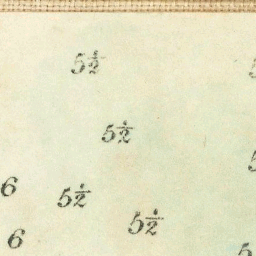 5½
5½
6
5½
5½
6